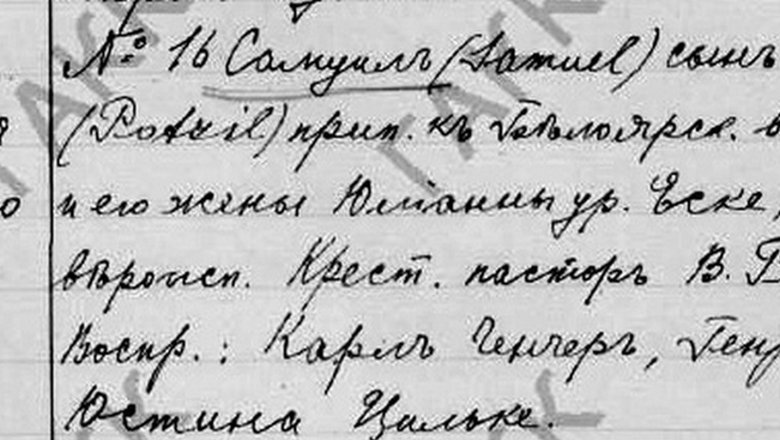 № 16 Самуилъ (Samuel) сынъ
(Potzil) прип. къ Бѣлоярск. в
о и его жены Юліанны ур. Еске,
вѣроисп. Крест. пасторъ В.
Воспр.: Карлъ Генчеръ, Генр
Юстина Цильке.